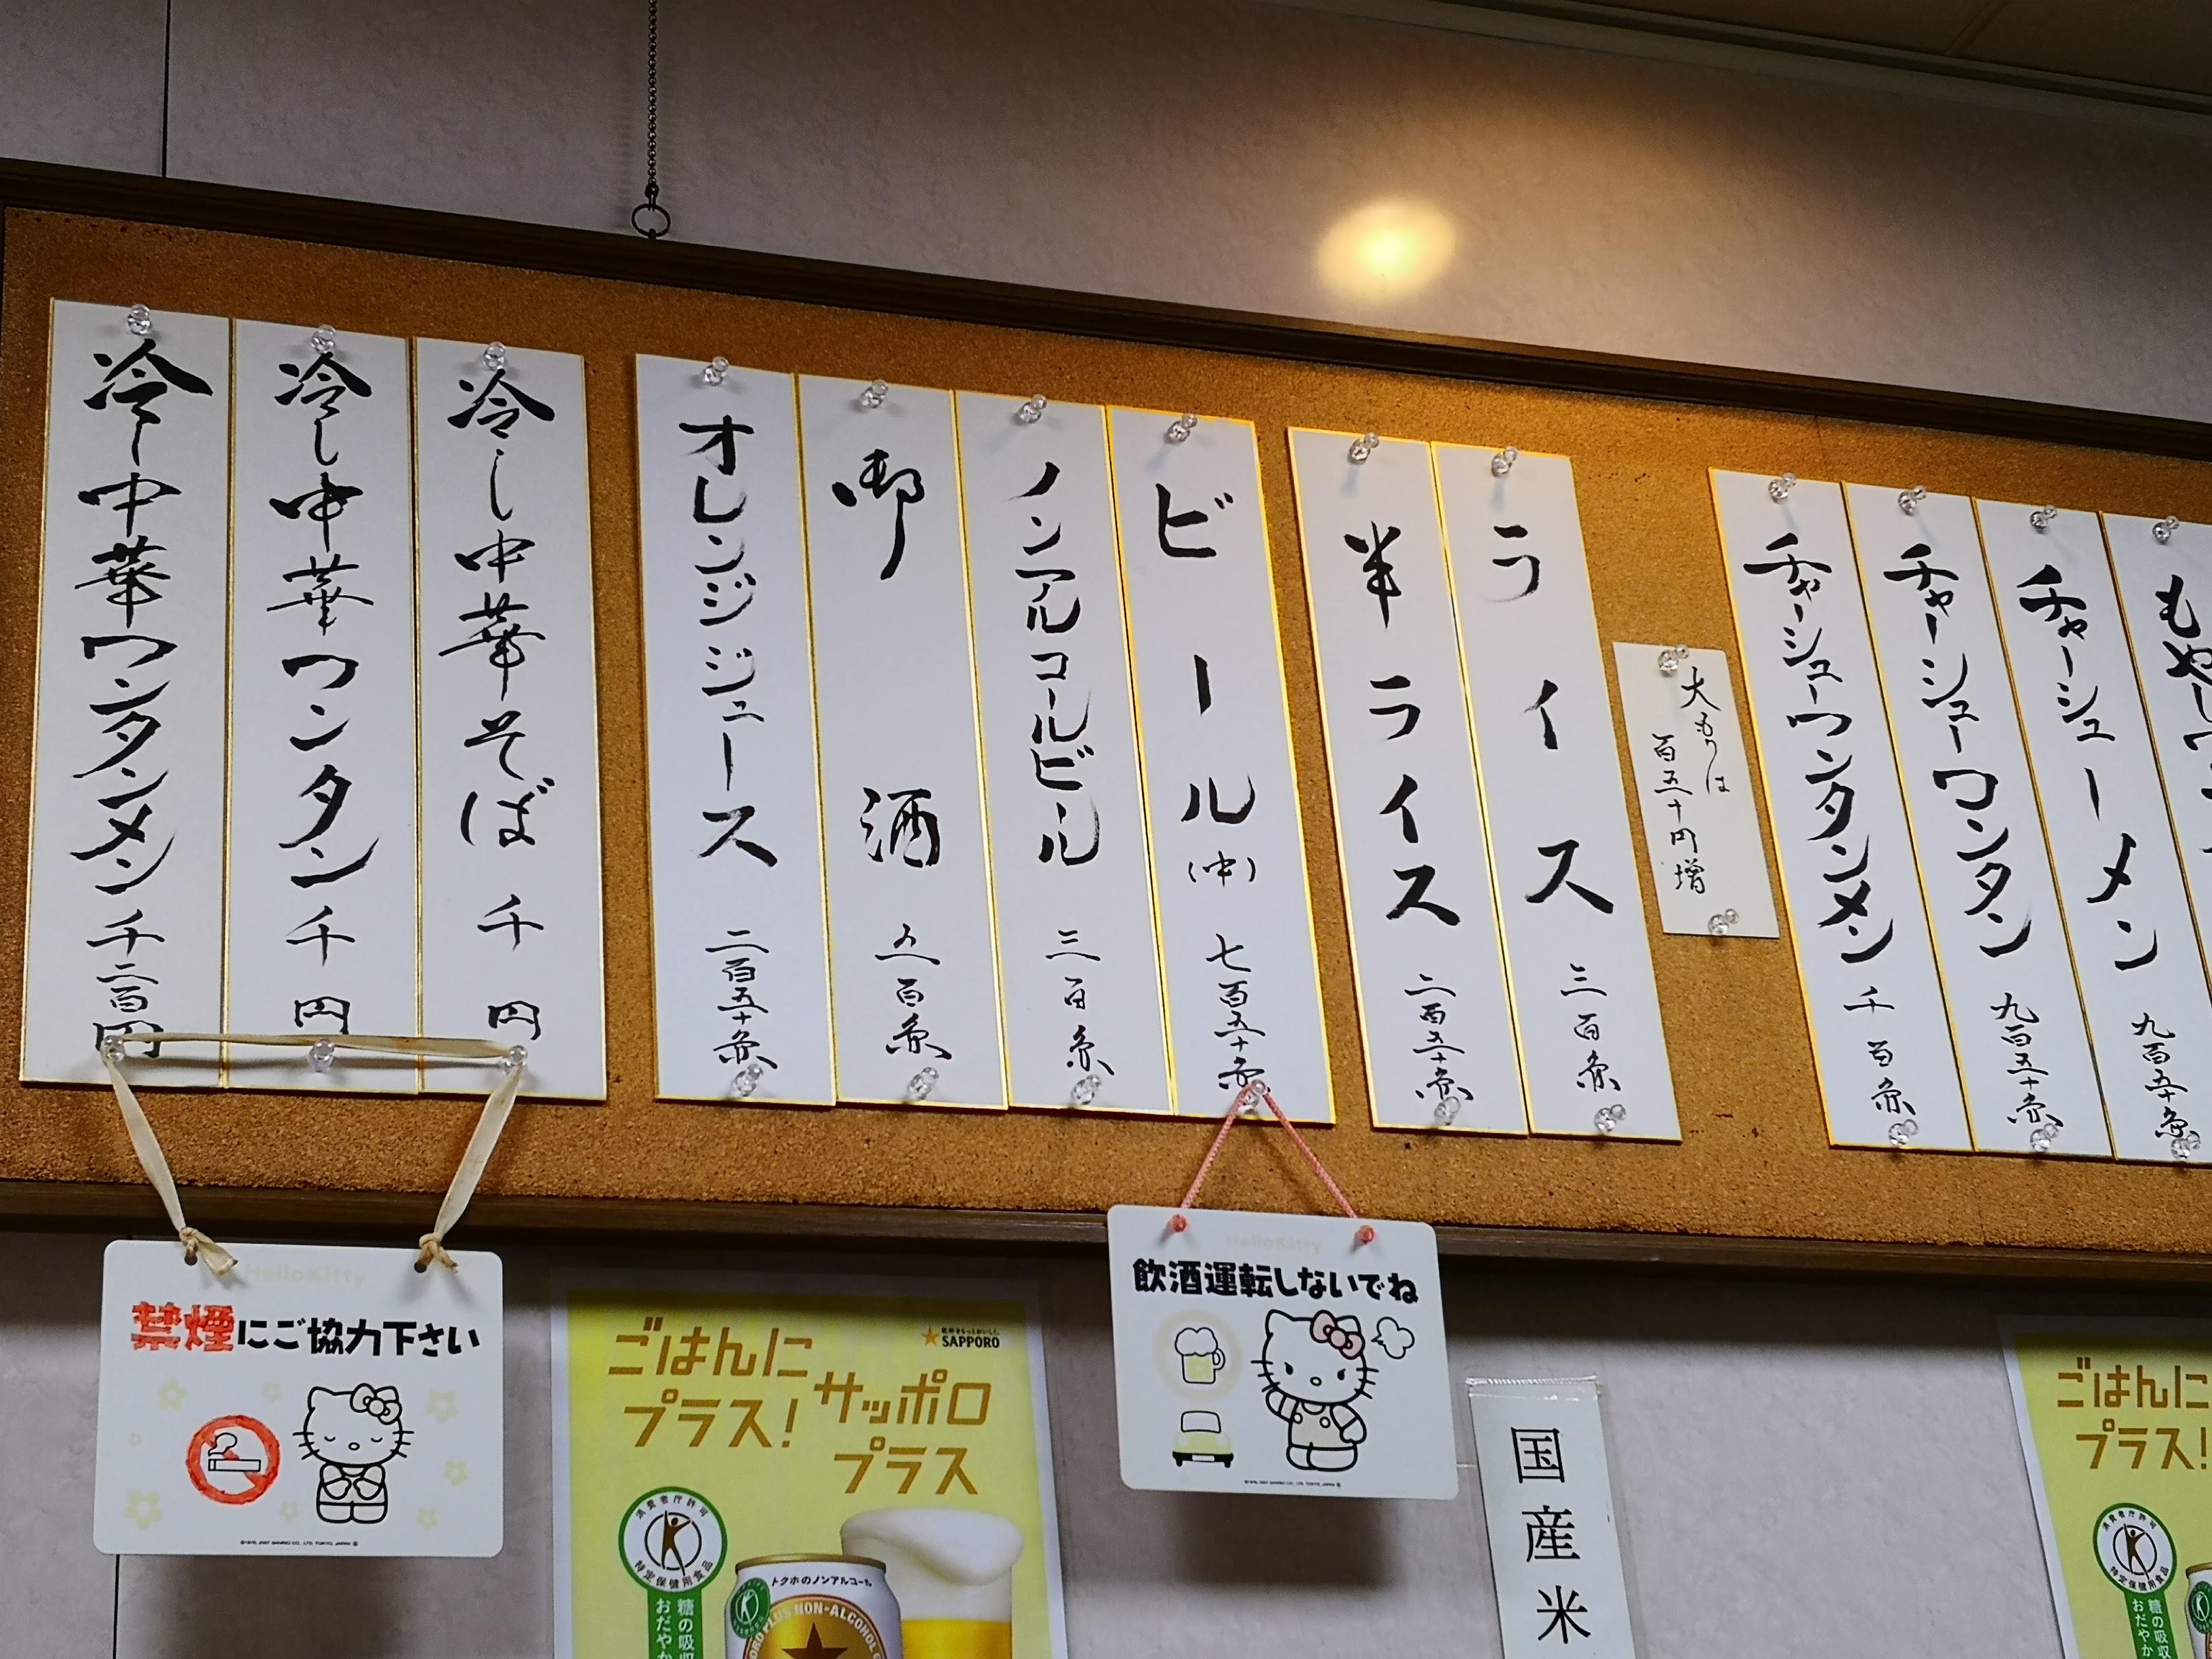 もやし
チャーシューメン 九百五十円
チャーシューワンタン 九百五十円
チャーシューワンタンメン 千百円
大もりは
百五十円増
ライス 三百円
半ライス 二百五十円
ビール(中) 七百五十円
ノンアルコールビール 三百円
御酒 五百円
オレンジジュース 二百五十円
冷し中華そば 千円
冷し中華ワンタン 千円
冷し中華ワンタンメン 千二百円
HelloKitty
禁煙にご協力下さい
ごはんに
プラス!
サッポロ
プラス
SAPPORO
消費者庁許可
特定保健用食品
糖の吸収
おだやか
トクホのノンアルコール
PLUS NON-ALCOHOL
HelloKitty
飲酒運転しないでね
国産米
ごはんに
プラス!
消費者庁許可
特定保健用食品
糖の吸収
おだやか